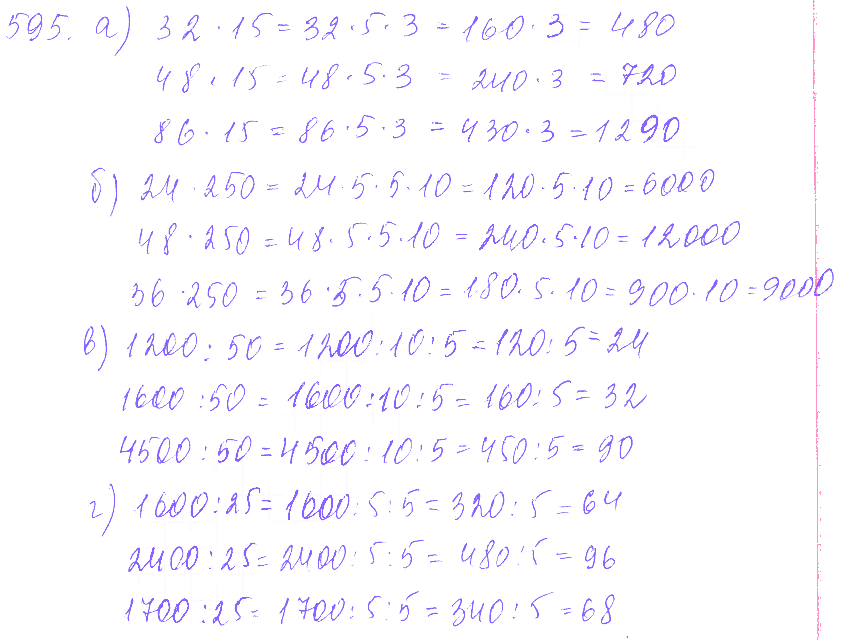 595. а) 32 · 15 = 32 · 5 · 3 = 160 · 3 = 480
48 · 15 = 48 · 5 · 3 = 240 · 3 = 720
86 · 15 = 86 · 5 · 3 = 430 · 3 = 1290
б) 24 · 250 = 24 · 5 · 5 · 10 = 120 · 5 · 10 = 6000
48 · 250 = 48 · 5 · 5 · 10 = 240 · 5 · 10 = 12000
36 · 250 = 36 · 5 · 5 · 10 = 180 · 5 · 10 = 900 · 10 = 9000
в) 1200 : 50 = 1200 : 10 : 5 = 120 : 5 = 24
1600 : 50 = 1600 : 10 : 5 = 160 : 5 = 32
4500 : 50 = 4500 : 10 : 5 = 450 : 5 = 90
г) 1600 : 25 = 1600 : 5 : 5 = 320 : 5 = 64
2400 : 25 = 2400 : 5 : 5 = 480 : 5 = 96
1700 : 25 = 1700 : 5 : 5 = 340 : 5 = 68